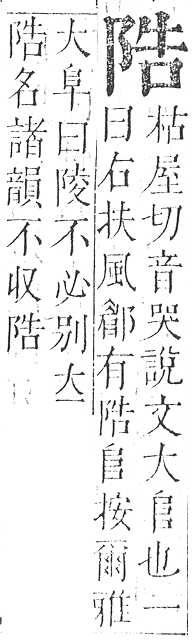 𨹟
枯屋切音哭說文大𨸏也一
曰右扶風郿有𨹟𨸏按爾雅
大阜曰陵不必別大
𨹟名諸韻不収𨹟